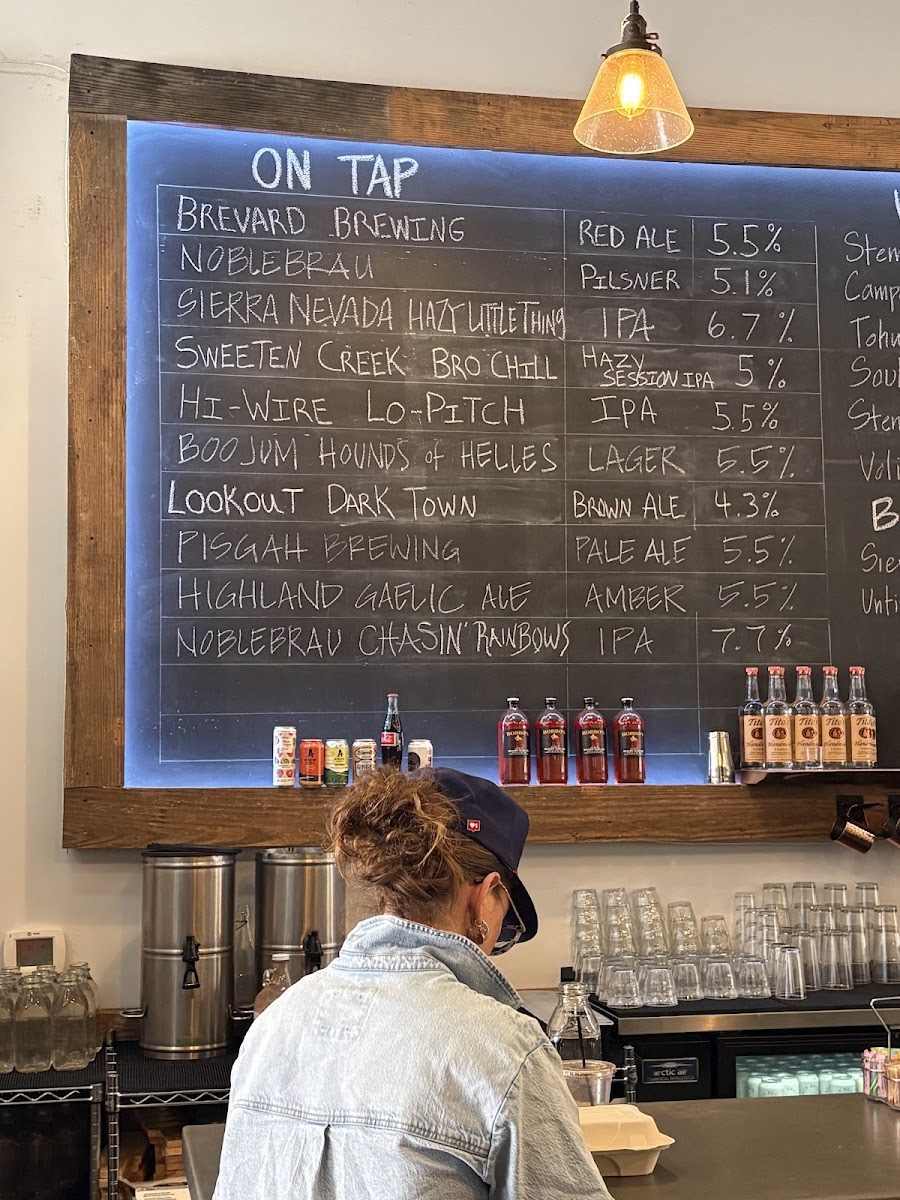 ON TAP
BREVARD BREWING RED ALE 5.5%
NOBLEBRAU PILSNER 5.1%
SIERRA NEVADA HAZY LITTLE THING IPA 6.7%
SWEETEN CREEK BRO CHILL HAZY SESSION IPA 5%
HI-WIRE LO-PITCH IPA 5.5%
BOOJUM HOUNDS of HELLES LAGER 5.5%
LOOKOUT DARK TOWN BROWN ALE 4.3%
PISGAH BREWING PALE ALE 5.5%
HIGHLAND GAELIC ALE AMBER 5.5%
NOBLEBRAU CHASIN' RAINBOWS IPA 7.7%
Tito's
Handmade
arctic air